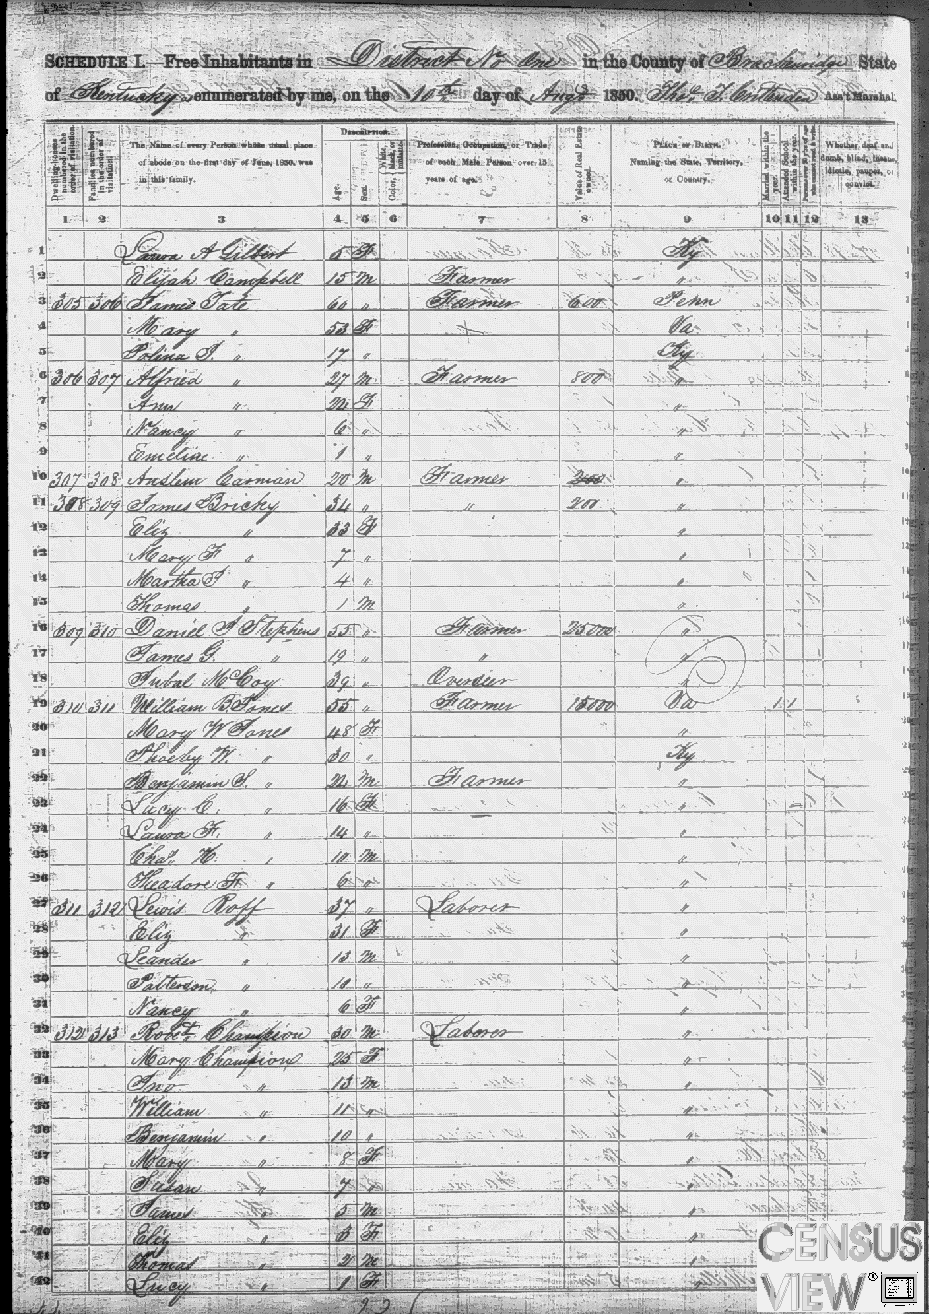 SCHEDULE I.—Free Inhabitants in District No One in the County of Breckinridge State
of Kentucky enumerated by me, on the 10th day of Augt 1850. Thos. Ass't Marshal.
Dwelling-houses numbered in the order of visitation.
Families numbered in the order of visitation.
The Name of every Person whose usual place of abode on the first day of June, 1850, was in this family.
Description.
Age.
Sex.
Color, White, black, or mulatto.
Profession, Occupation, or Trade of each Male Person over 15 years of age.
Value of Real Estate owned.
Place of Birth. Naming the State, Territory, or Country.
Married within the year.
Attended School within the year.
Whether deaf and dumb, blind, insane, idiotic, pauper, or convict.
1 2 3 4 5 6 7 8 9 10 11 12 13
1 Laura A Gilbert 5 F Ky
2 Elijah Campbell 15 M Farmer "
3 305 306 James Tate 60 " Farmer 600 Penn
4 Mary " 53 F Va
5 Polina J. " 17 " Ky
6 306 307 Alfried " 27 M Farmer 800 "
7 Ann " 22 F "
8 Nancy " 6 " "
9 Emeliae " 1 " "
10 307 308 Anslem Carman 20 M Farmer 200 "
11 308 309 James Bricky 34 " " 200 "
12 Eliz " 33 F "
13 Mary F " 7 " "
14 Martha J " 4 " "
15 Thomas " 1 M "
16 309 310 Daniel A Stephens 55 " Farmer 25000 "
17 James G. " 19 " " "
18 Jubal McCoy 39 " Overseer "
19 310 311 William B Jones 55 " Farmer 15000 Va 1 1
20 Mary W Jones 48 F "
21 Phoeby W. " 30 " Ky
22 Benjamin S. " 22 M Farmer "
23 Lucy C. " 16 F "
24 Laura F. " 14 " "
25 Chas. H. " 10 M "
26 Theadore F " 6 " "
27 311 312 Lewis Roff 37 " Laborer "
28 Eliz " 31 F "
29 Leander " 13 M "
30 Patterson " 10 " "
31 Nancy " 6 F "
32 312 313 Robt. Champion 30 M Laborer "
33 Mary Champion 25 F "
34 Jno " " 13 M "
35 William " " 11 " "
36 Benjamin " 10 " "
37 Mary " 8 F "
38 Susan " 7 " "
39 James " 5 M "
40 Eliz " 3 F "
41 Thomas " 2 M "
42 Lucy " 1 F "
CENSUS
VIEW®